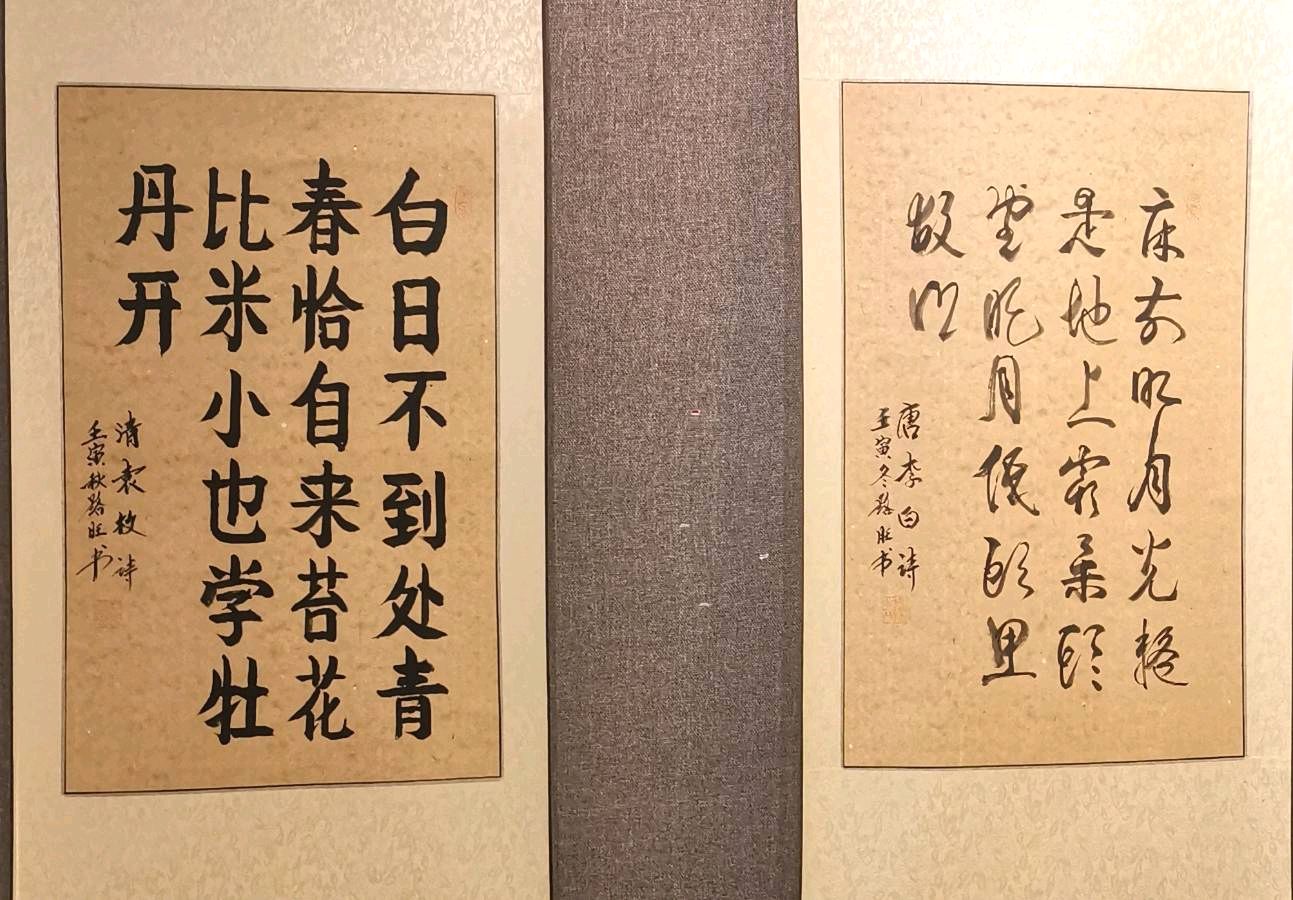 床前明月光疑
是地上霜举頭
望明月低頭思
故鄉
唐李白诗
壬寅冬路旺书
白日不到处青
春恰自来苔花
比米小也学牡
丹开
清袁枚诗
壬寅秋路旺书